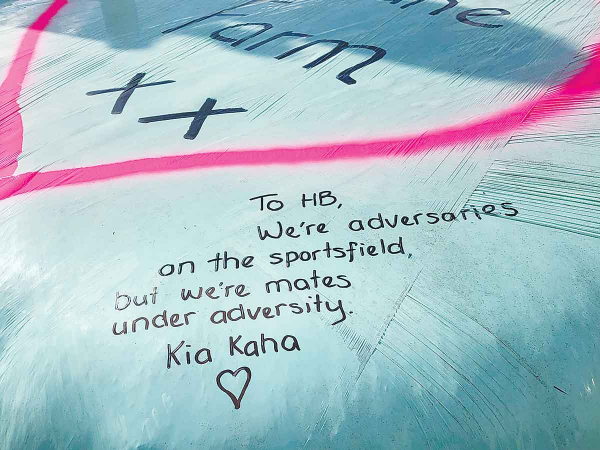 Farm
++
To HB,
We're adversaries
on the sportsfield,
but we're mates
under adversity.
Kia Kaha
♡